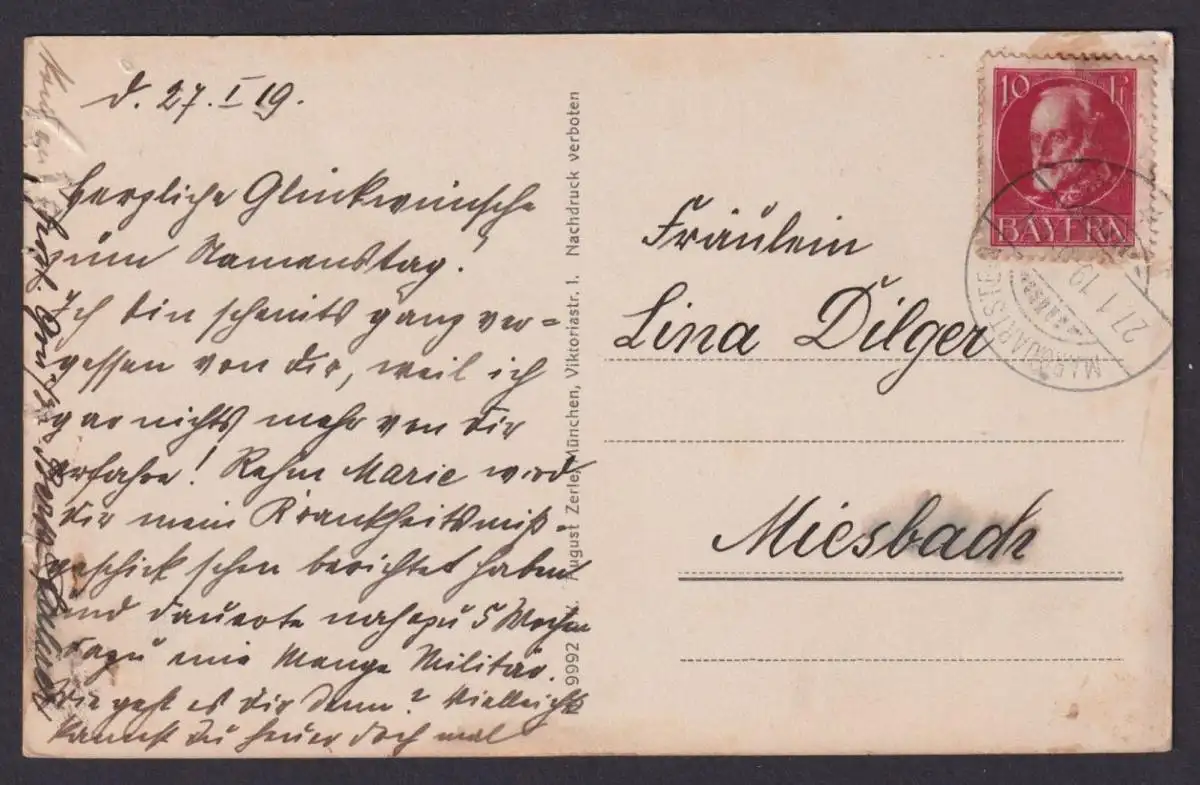 d. 27. I 19.
Herzliche Glückwünsche
zum Namenstag!
Ich bin scheints ganz ver=
gessen von dir, weil ich
gar nichts mehr von dir
erfahre! Marie wird
dir mein Krankheitsmiß=
geschick schon berichtet haben
und dauerte nahezu 5 Wochen
dazu eine Menge Militär.
Wie geht es dir denn? Vielleicht
kannst du heuer doch mal
9992 August Zerle, München, Viktoriastr. 1. Nachdruck verboten
10 Pf
BAYERN
27.1.19
Fräulein
Lina Dilger
Miesbach